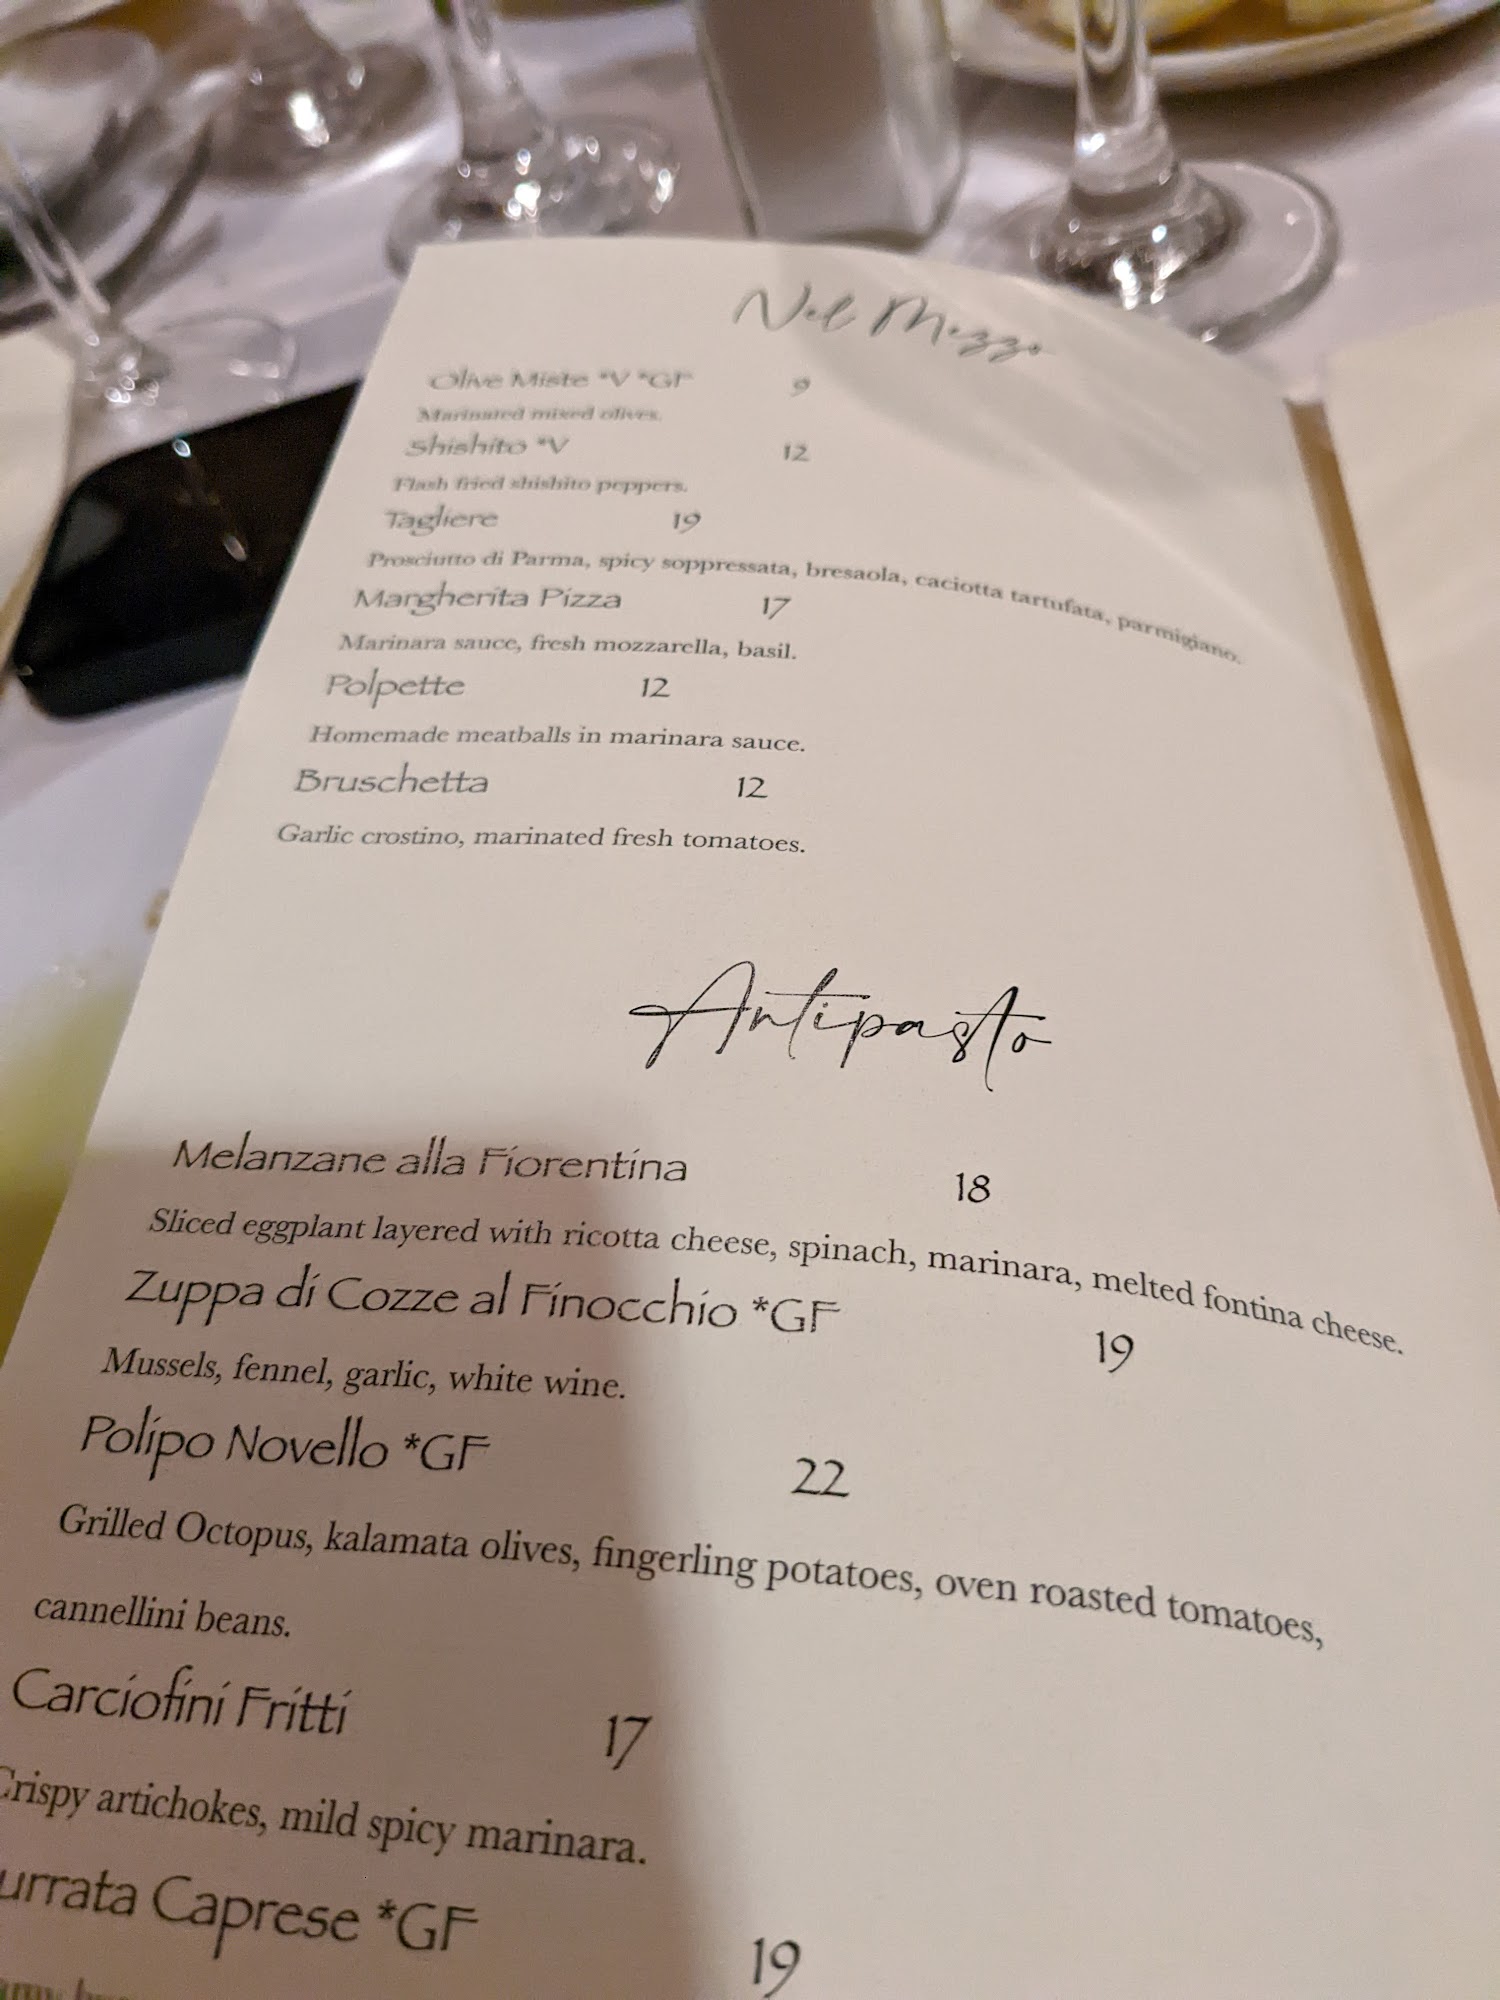 Nel Mezzo
Olive Miste *V *GF 9
Marinated mixed olives.
Shishito *V 12
Flash fried shishito peppers.
Tagliere 19
Prosciutto di Parma, spicy soppressata, bresaola, caciotta tartufata, parmigiano.
Margherita Pizza 17
Marinara sauce, fresh mozzarella, basil.
Polpette 12
Homemade meatballs in marinara sauce.
Bruschetta 12
Garlic crostino, marinated fresh tomatoes.
Antipasto
Melanzane alla Fiorentina 18
Sliced eggplant layered with ricotta cheese, spinach, marinara, melted fontina cheese.
Zuppa di Cozze al Finocchio *GF 19
Mussels, fennel, garlic, white wine.
Polipo Novello *GF 22
Grilled Octopus, kalamata olives, fingerling potatoes, oven roasted tomatoes,
cannellini beans.
Carciofini Fritti 17
Crispy artichokes, mild spicy marinara.
urrata Caprese *GF 19